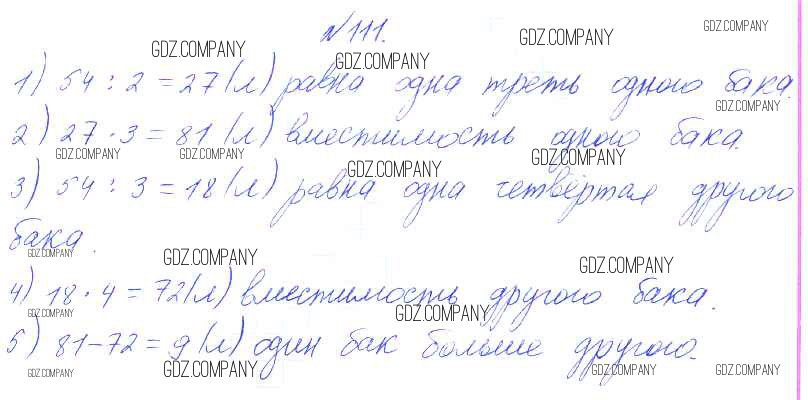 №111.
GDZ.COMPANY GDZ.COMPANY GDZ.COMPANY GDZ.COMPANY
1) 54 : 2 = 27 (л) равна одна треть одного бака.
GDZ.COMPANY
2) 27 · 3 = 81 (л) вместимость одного бака.
GDZ.COMPANY GDZ.COMPANY GDZ.COMPANY GDZ.COMPANY
3) 54 : 3 = 18 (л) равна одна четвёртая другого
бака.
GDZ.COMPANY GDZ.COMPANY GDZ.COMPANY
4) 18 · 4 = 72 (л) вместимость другого бака.
GDZ.COMPANY GDZ.COMPANY
5) 81 – 72 = 9 (л) один бак больше другого.
GDZ.COMPANY GDZ.COMPANY GDZ.COMPANY GDZ.COMPANY